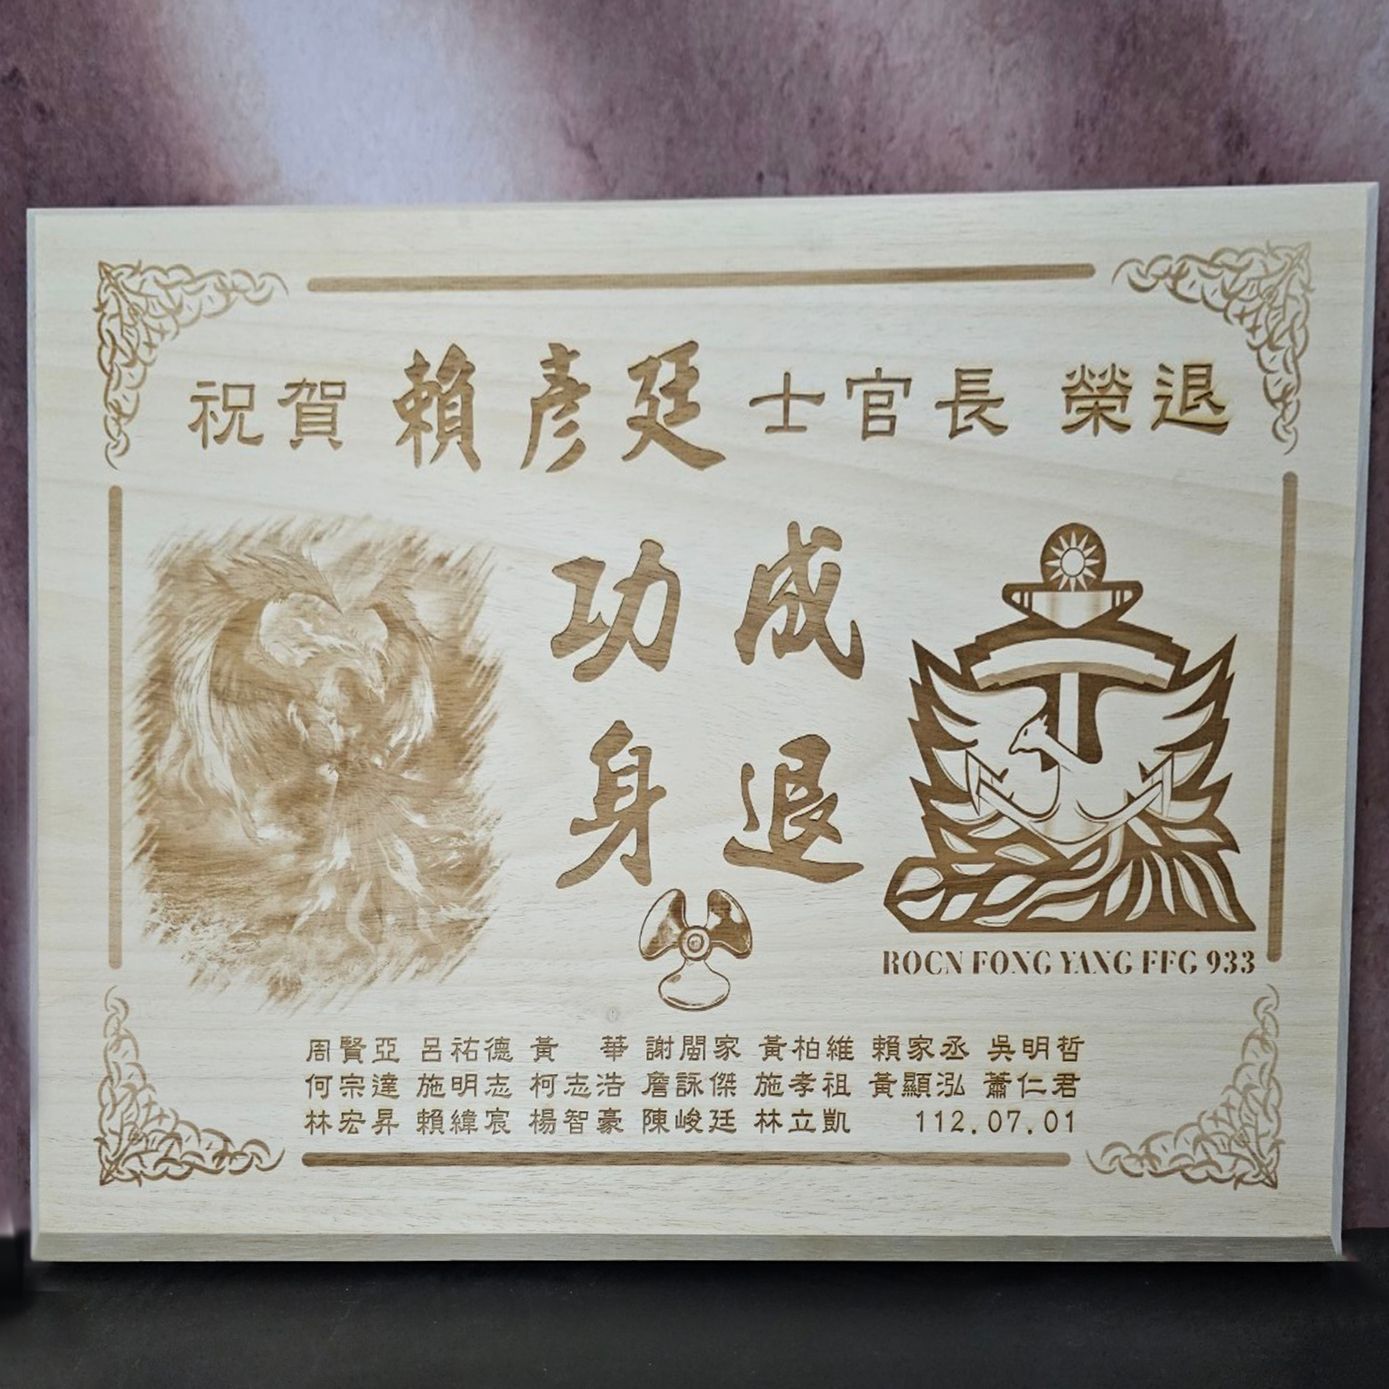 祝賀 賴彥廷 士官長 榮退
功成
身退
ROCN FONG YANG FFG 933
周賢亞 呂祐德 黃 華 謝閻家 黃柏維 賴家丞 吳明哲
何宗達 施明志 柯志浩 詹詠傑 施孝祖 黃顯泓 蕭仁君
林宏昇 賴緯宸 楊智豪 陳峻廷 林立凱 112.07.01